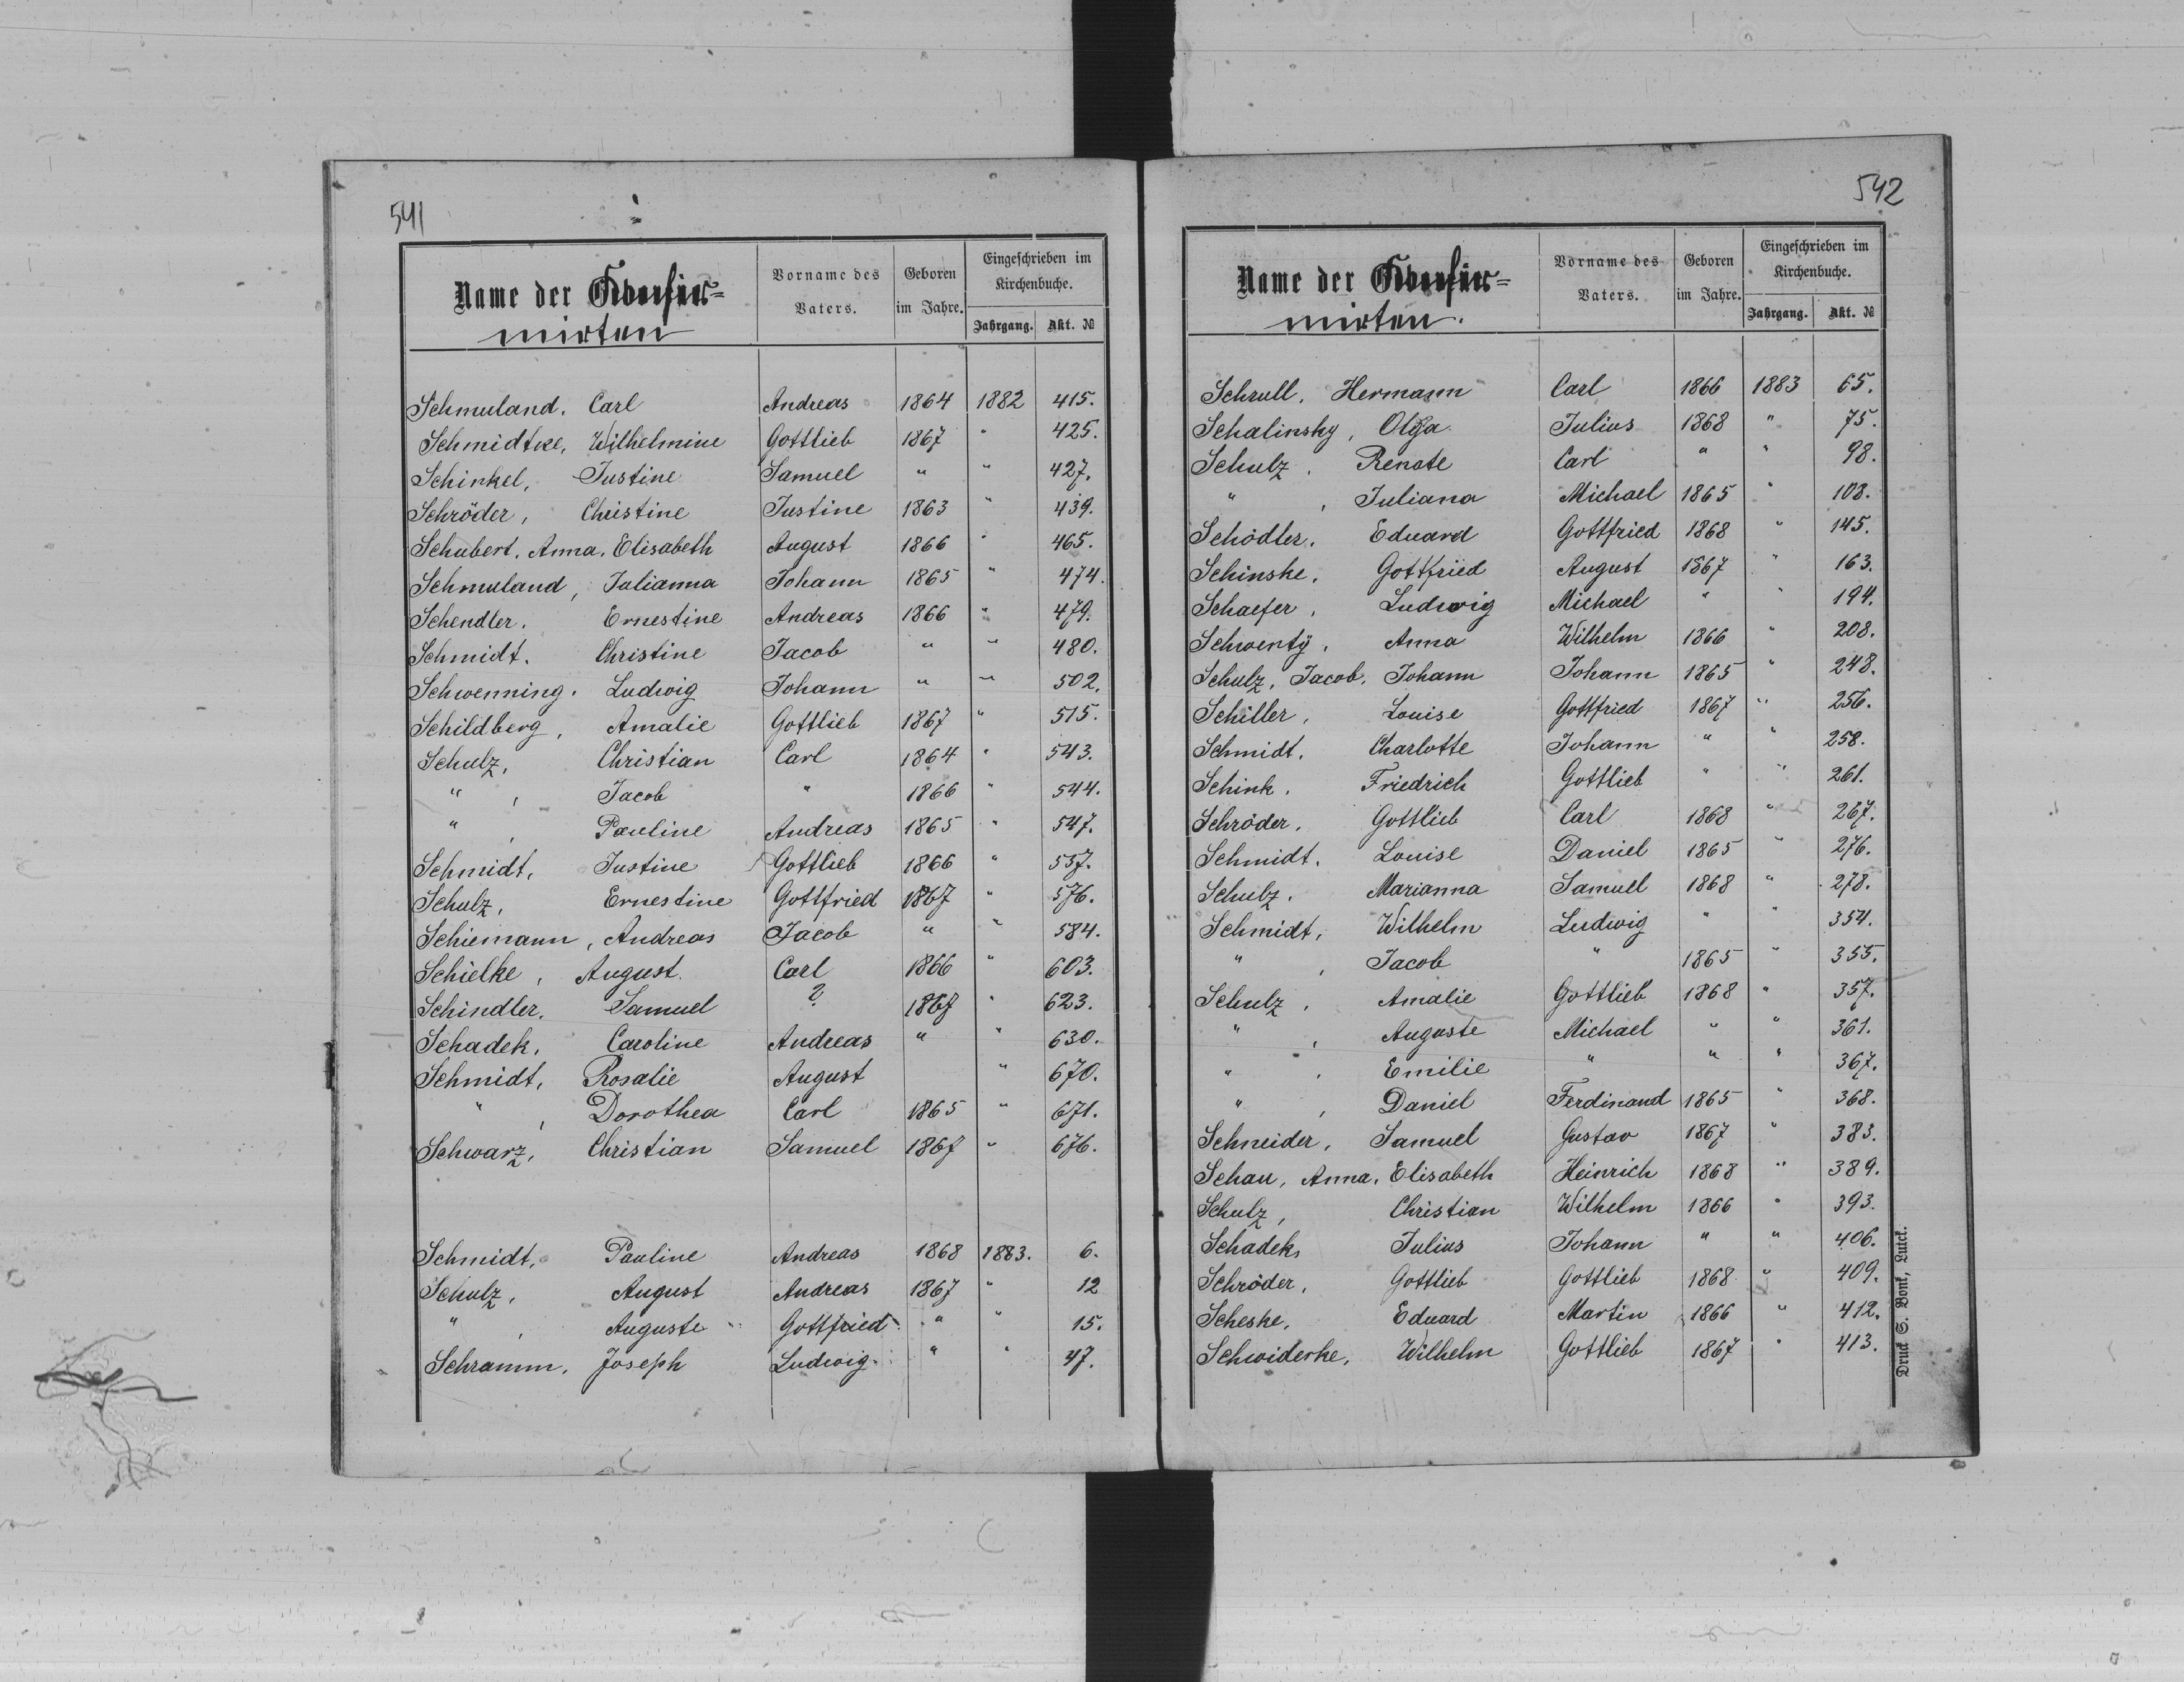 541
Name der Konfir=
mirten
Vorname des Vaters.
Geboren im Jahre.
Eingeschrieben im Kirchenbuche.
Jahrgang. Akt. №
Schmuland, Carl Andreas 1864 1882 415.
Schmidtke, Wilhelmine Gottlieb 1867 " 425.
Schinkel, Justine Samuel " " 427.
Schröder, Christine Justine 1863 " 439.
Schubert, Anna, Elisabeth August 1866 " 465.
Schmuland, Julianna Johann 1865 " 474.
Schendler, Ernestine Andreas 1866 " 479.
Schmidt, Christine Jacob " " 480.
Schwenning, Ludwig Johann " " 502.
Schildberg, Amalie Gottlieb 1867 " 515.
Schulz, Christian Carl 1864 " 543.
" , Jacob " 1866 " 544.
" , Pauline Andreas 1865 " 547.
Schmidt, Justine Gottlieb 1866 " 557.
Schulz, Ernestine Gottfried 1867 " 576.
Schiemann, Andreas Jacob " " 584.
Schielke, August Carl 1866 " 603.
Schindler, Samuel ? 1867 " 623.
Schadek, Caroline Andreas " " 630.
Schmidt, Rosalie August " 670.
" , Dorothea Carl 1865 " 671.
Schwarz, Christian Samuel 1867 " 676.
Schmidt, Pauline Andreas 1868 1883. 6.
Schulz, August Andreas 1867 " 12
" , Auguste Gottfried " " 15.
Schramm, Joseph Ludwig " " 47.
542
Name der Konfir=
mirten.
Vorname des Vaters.
Geboren im Jahre.
Eingeschrieben im Kirchenbuche.
Jahrgang. Akt. №
Schrull, Hermann Carl 1866 1883 65.
Schalinsky, Olga Julius 1868 " 75.
Schulz, Renate Carl " " 98.
" , Juliana Michael 1865 " 108.
Schödler, Eduard Gottfried 1868 " 145.
Schinske, Gottfried August 1867 " 163.
Schaefer, Ludwig Michael " " 194.
Schwenty, Anna Wilhelm 1866 " 208.
Schulz, Jacob, Johann Johann 1865 " 248.
Schiller, Louise Gottfried 1867 " 256.
Schmidt, Charlotte Johann " " 258.
Schink, Friedrich Gottlieb " " 261.
Schröder, Gottlieb Carl 1868 " 267.
Schmidt, Louise Daniel 1865 " 276.
Schulz, Marianna Samuel 1868 " 278.
Schmidt, Wilhelm Ludwig " " 354.
" , Jacob " 1865 " 355.
Schulz, Amalie Gottlieb 1868 " 357.
" , Auguste Michael " " 361.
" , Emilie " " " 367.
" , Daniel Ferdinand 1865 " 368.
Schneider, Samuel Gustav 1867 " 383.
Schau, Anna, Elisabeth Heinrich 1868 " 389.
Schulz, Christian Wilhelm 1866 " 393.
Schadek, Julius Johann " " 406.
Schröder, Gottlieb Gottlieb 1868 " 409.
Scheske, Eduard Martin 1866 " 412.
Schwiderke, Wilhelm Gottlieb 1867 " 413.
Druck S. Bonk, Lutck.